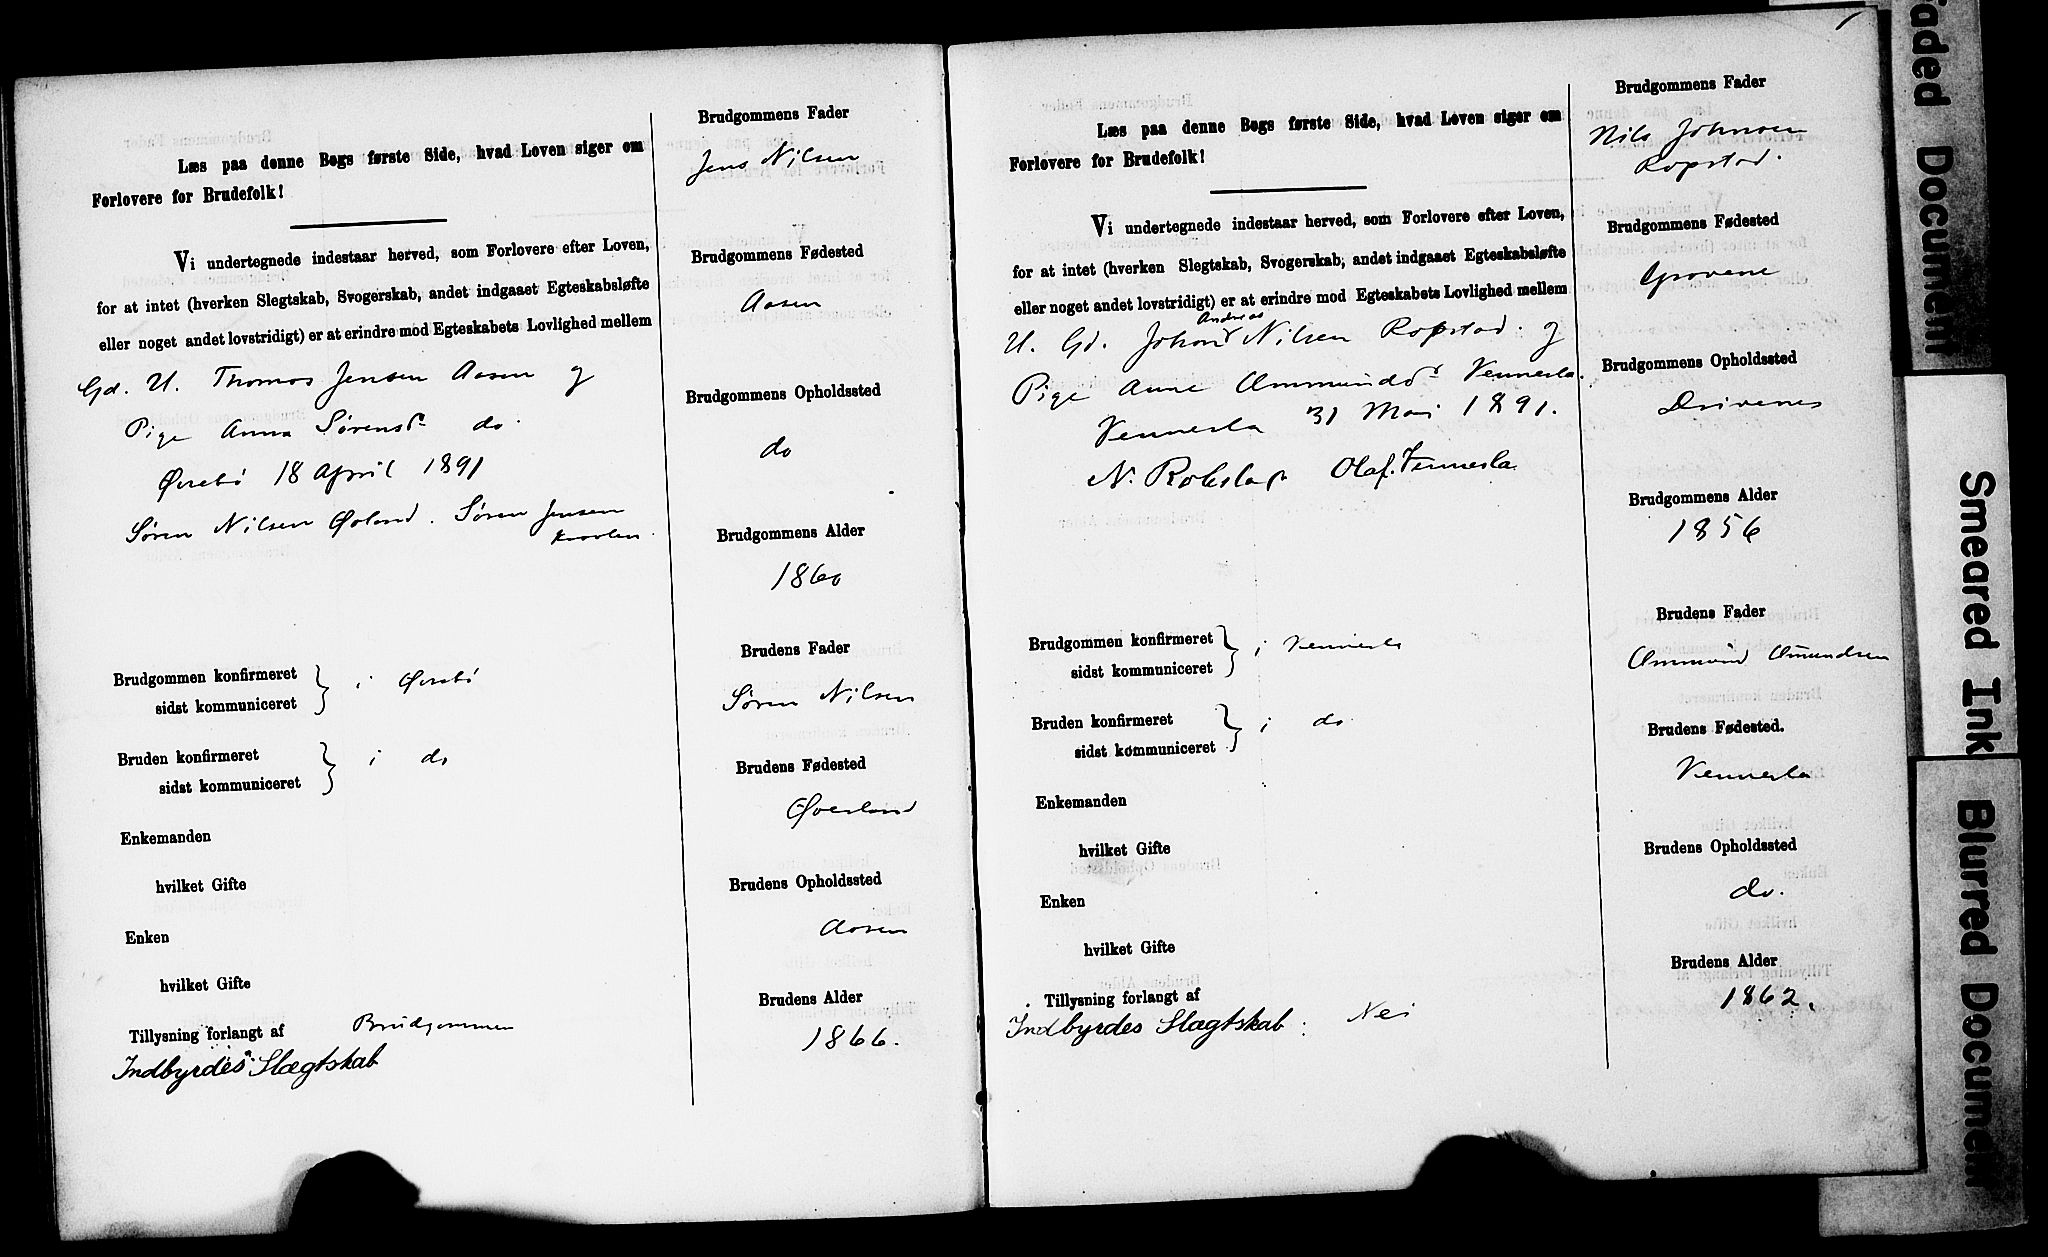 Læs paa denne Bogs første Side, hvad Loven siger om
Forlovere for Brudefolk!
Vi undertegnede indestaar herved, som Forlovere efter Loven,
for at intet (hverken Slegtskab, Svogerskab, andet indgaaet Egteskabsløfte
eller noget andet lovstridigt) er at erindre mod Egteskabets Lovlighed mellem
Gd. U. Thomas Jensen Aasen og
Pige Anna Sørensd. do.
Øvrebø 18 April 1891
Søren Nilsen Øvland. Søren Jensen
Brudgommen konfirmeret
sidst kommuniceret
i Øvrebø
Bruden konfirmeret
sidst kommuniceret
i do
Enkemanden
hvilket Gifte
Enken
hvilket Gifte
Tillysning forlangt af Brudgommen
Indbyrdes Slægtskab
Brudgommens Fader
Jens Nilsen
Brudgommens Fødested
Aasen
Brudgommens Opholdssted
do
Brudgommens Alder
1860
Brudens Fader
Søren Nilsen
Brudens Fødested
Øverland
Brudens Opholdssted
Aasen
Brudens Alder
1866.
Læs paa denne Bogs første Side, hvad Loven siger om
Forlovere for Brudefolk!
Vi undertegnede indestaar herved, som Forlovere efter Loven,
for at intet (hverken Slegtskab, Svogerskab, andet indgaaet Egteskabsløfte
eller noget andet lovstridigt) er at erindre mod Egteskabets Lovlighed mellem
Andreas
U. Gd. Johan Nilsen Ropstad. og
Pige Anne Ommundsd. Vennesla.
Vennesla 31 Mai 1891.
N. Olaf. Vennesla
Brudgommen konfirmeret
sidst kommuniceret
i Vennesla
Bruden konfirmeret
sidst kommuniceret
i do
Enkemanden
hvilket Gifte
Enken
hvilket Gifte
Tillysning forlangt af
Indbyrdes Slægtskab: Nei
Brudgommens Fader
Nils Johnsen
Ropstad.
Brudgommens Fødested
Grovene
Brudgommens Opholdssted
Drivenes
Brudgommens Alder
1856
Brudens Fader
Ommund Omundsen
Brudens Fødested.
Vennesla
Brudens Opholdssted
do.
Brudens Alder
1862.
Faded Document
Smeared Ink
Blurred Document